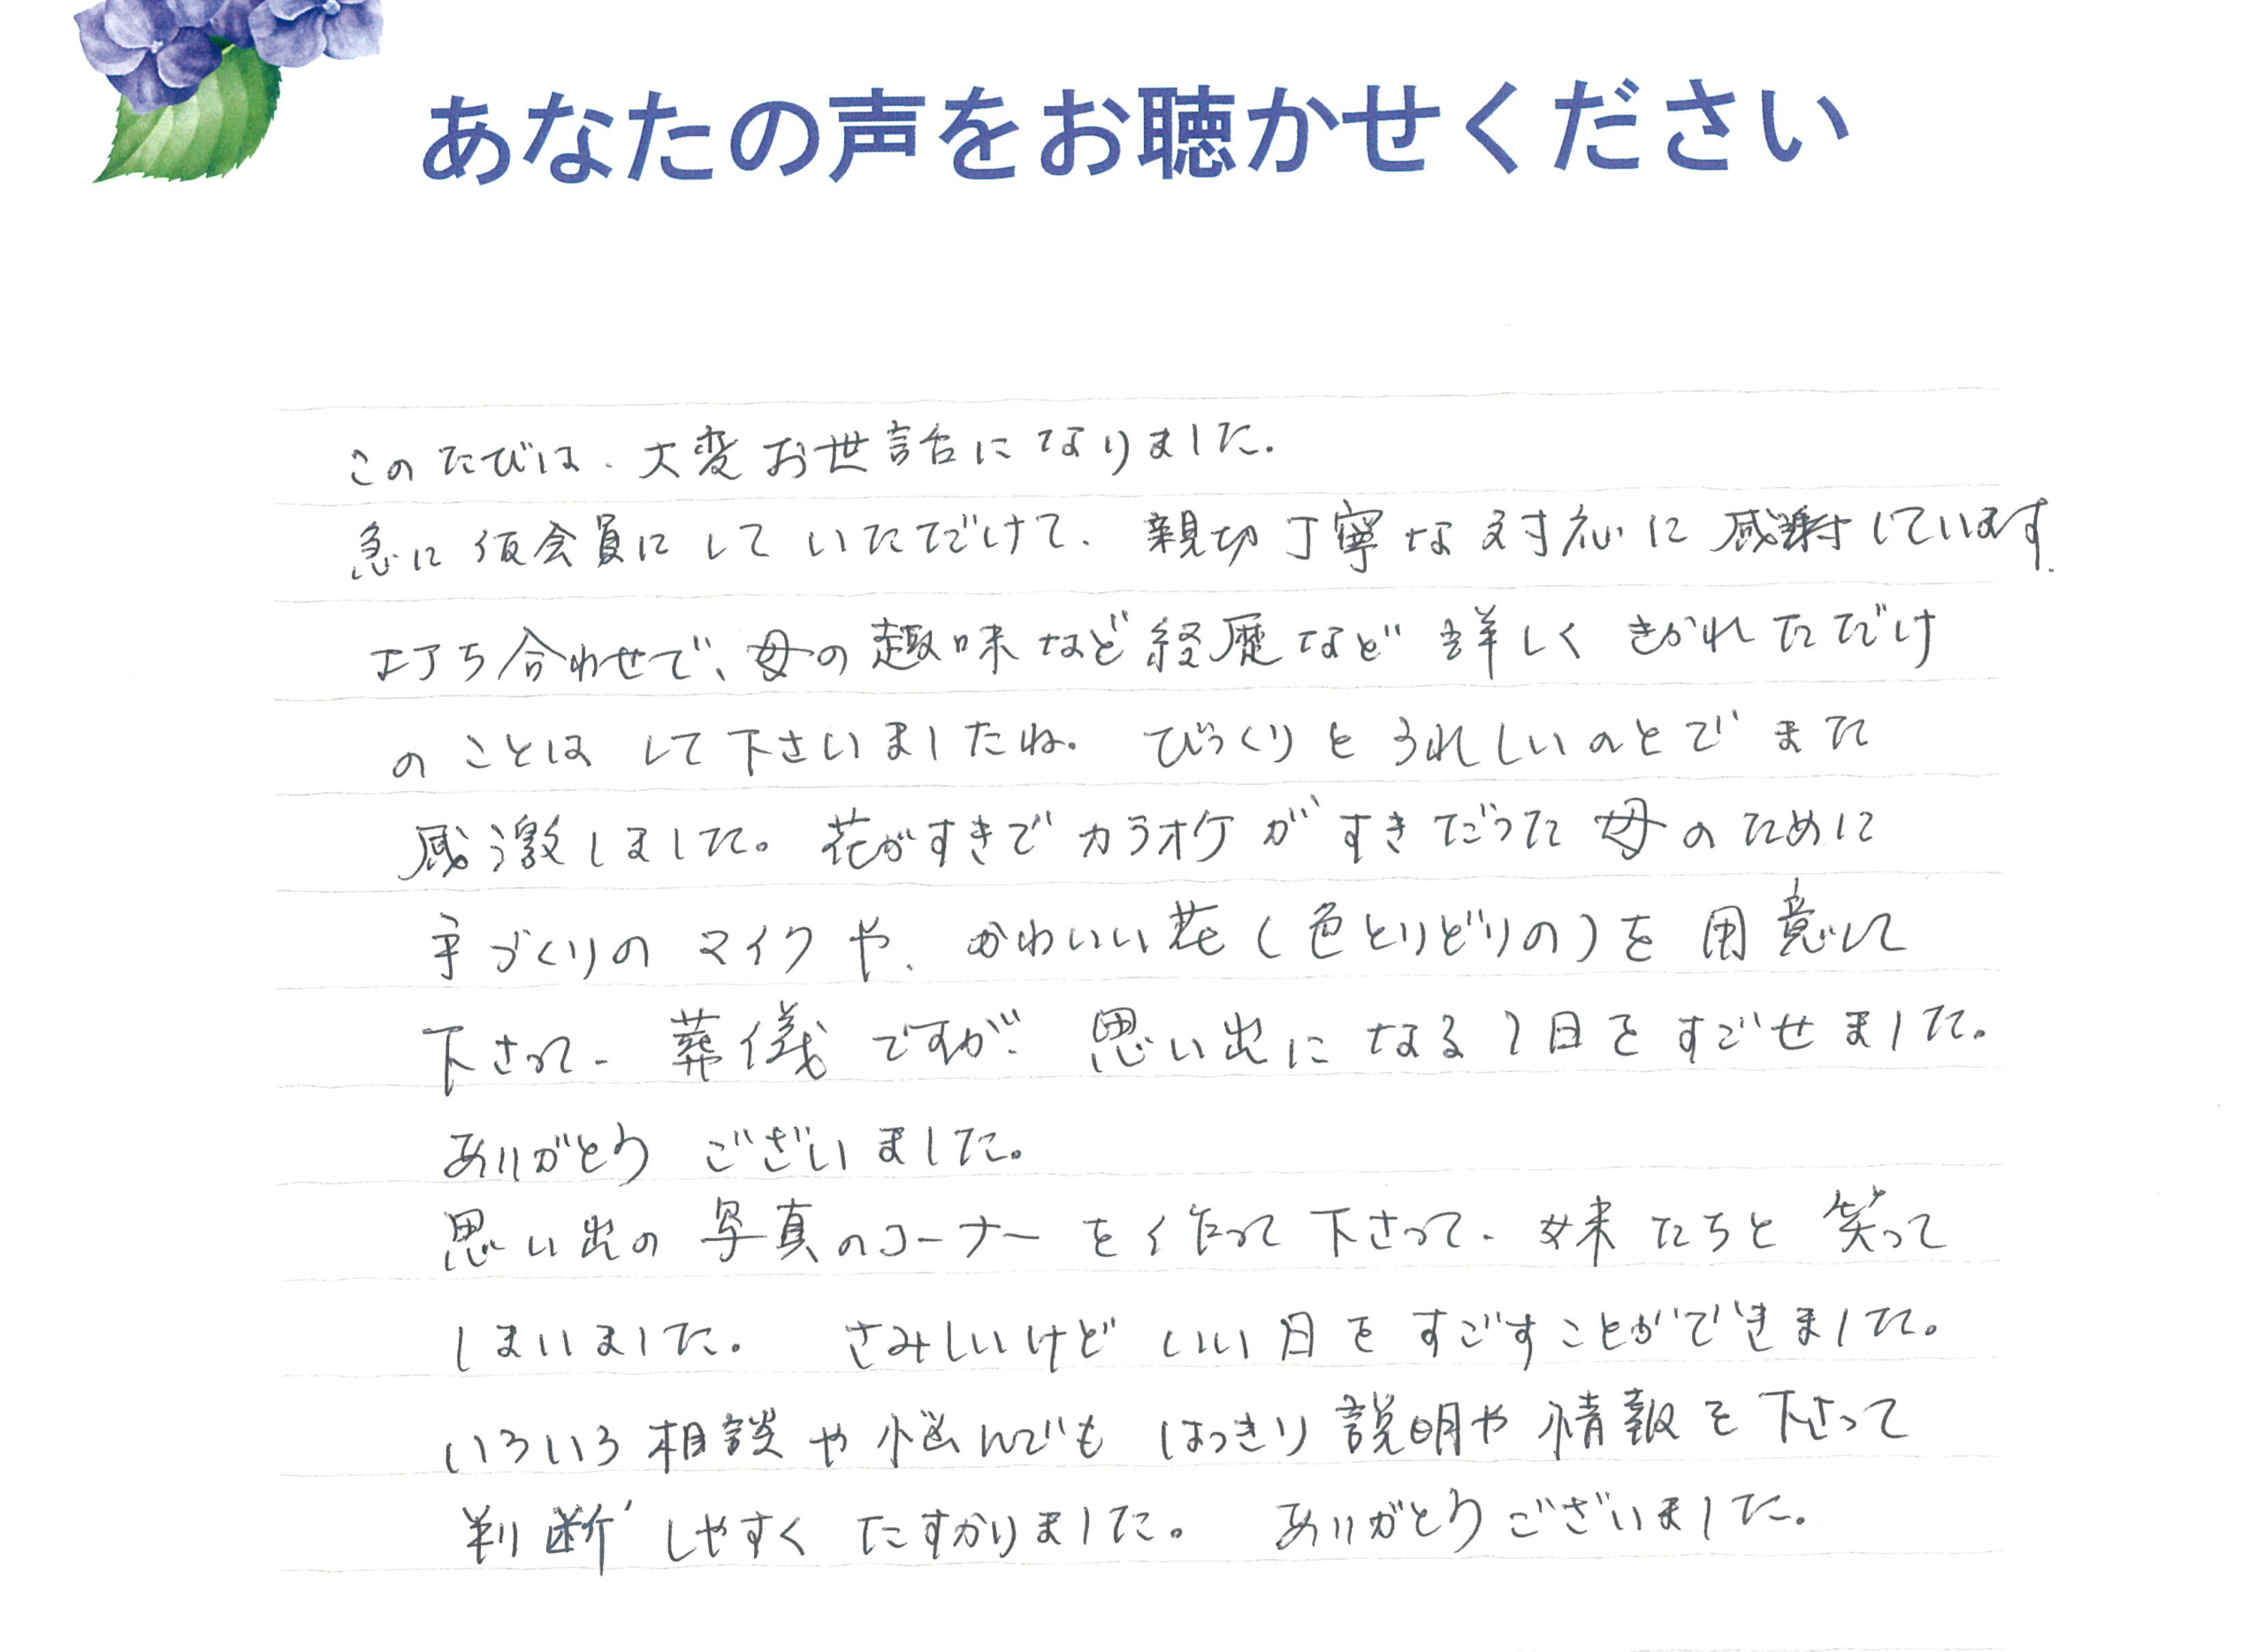 あなたの声をお聴かせください
このたびは、大変お世話になりました。
急に仮会員にしていただけて、親切丁寧な対応に感謝しています。
打ち合わせで、母の趣味など経歴など詳しくきかれただけ
のことはして下さいましたね。びっくりとうれしいのとでまた
感激しました。花がすきでカラオケがすきだった母のために
手づくりのマイクや、かわいい花(色とりどりの)を用意して
下さって、葬儀ですが、思い出になる1日をすごせました。
ありがとうございました。
思い出の写真のコーナーを作って下さって、妹たちと笑って
しまいました。さみしいけどいい日をすごすことができました。
いろいろ相談や悩んでもはっきり説明や情報を下さって
判断しやすくたすかりました。ありがとうございました。